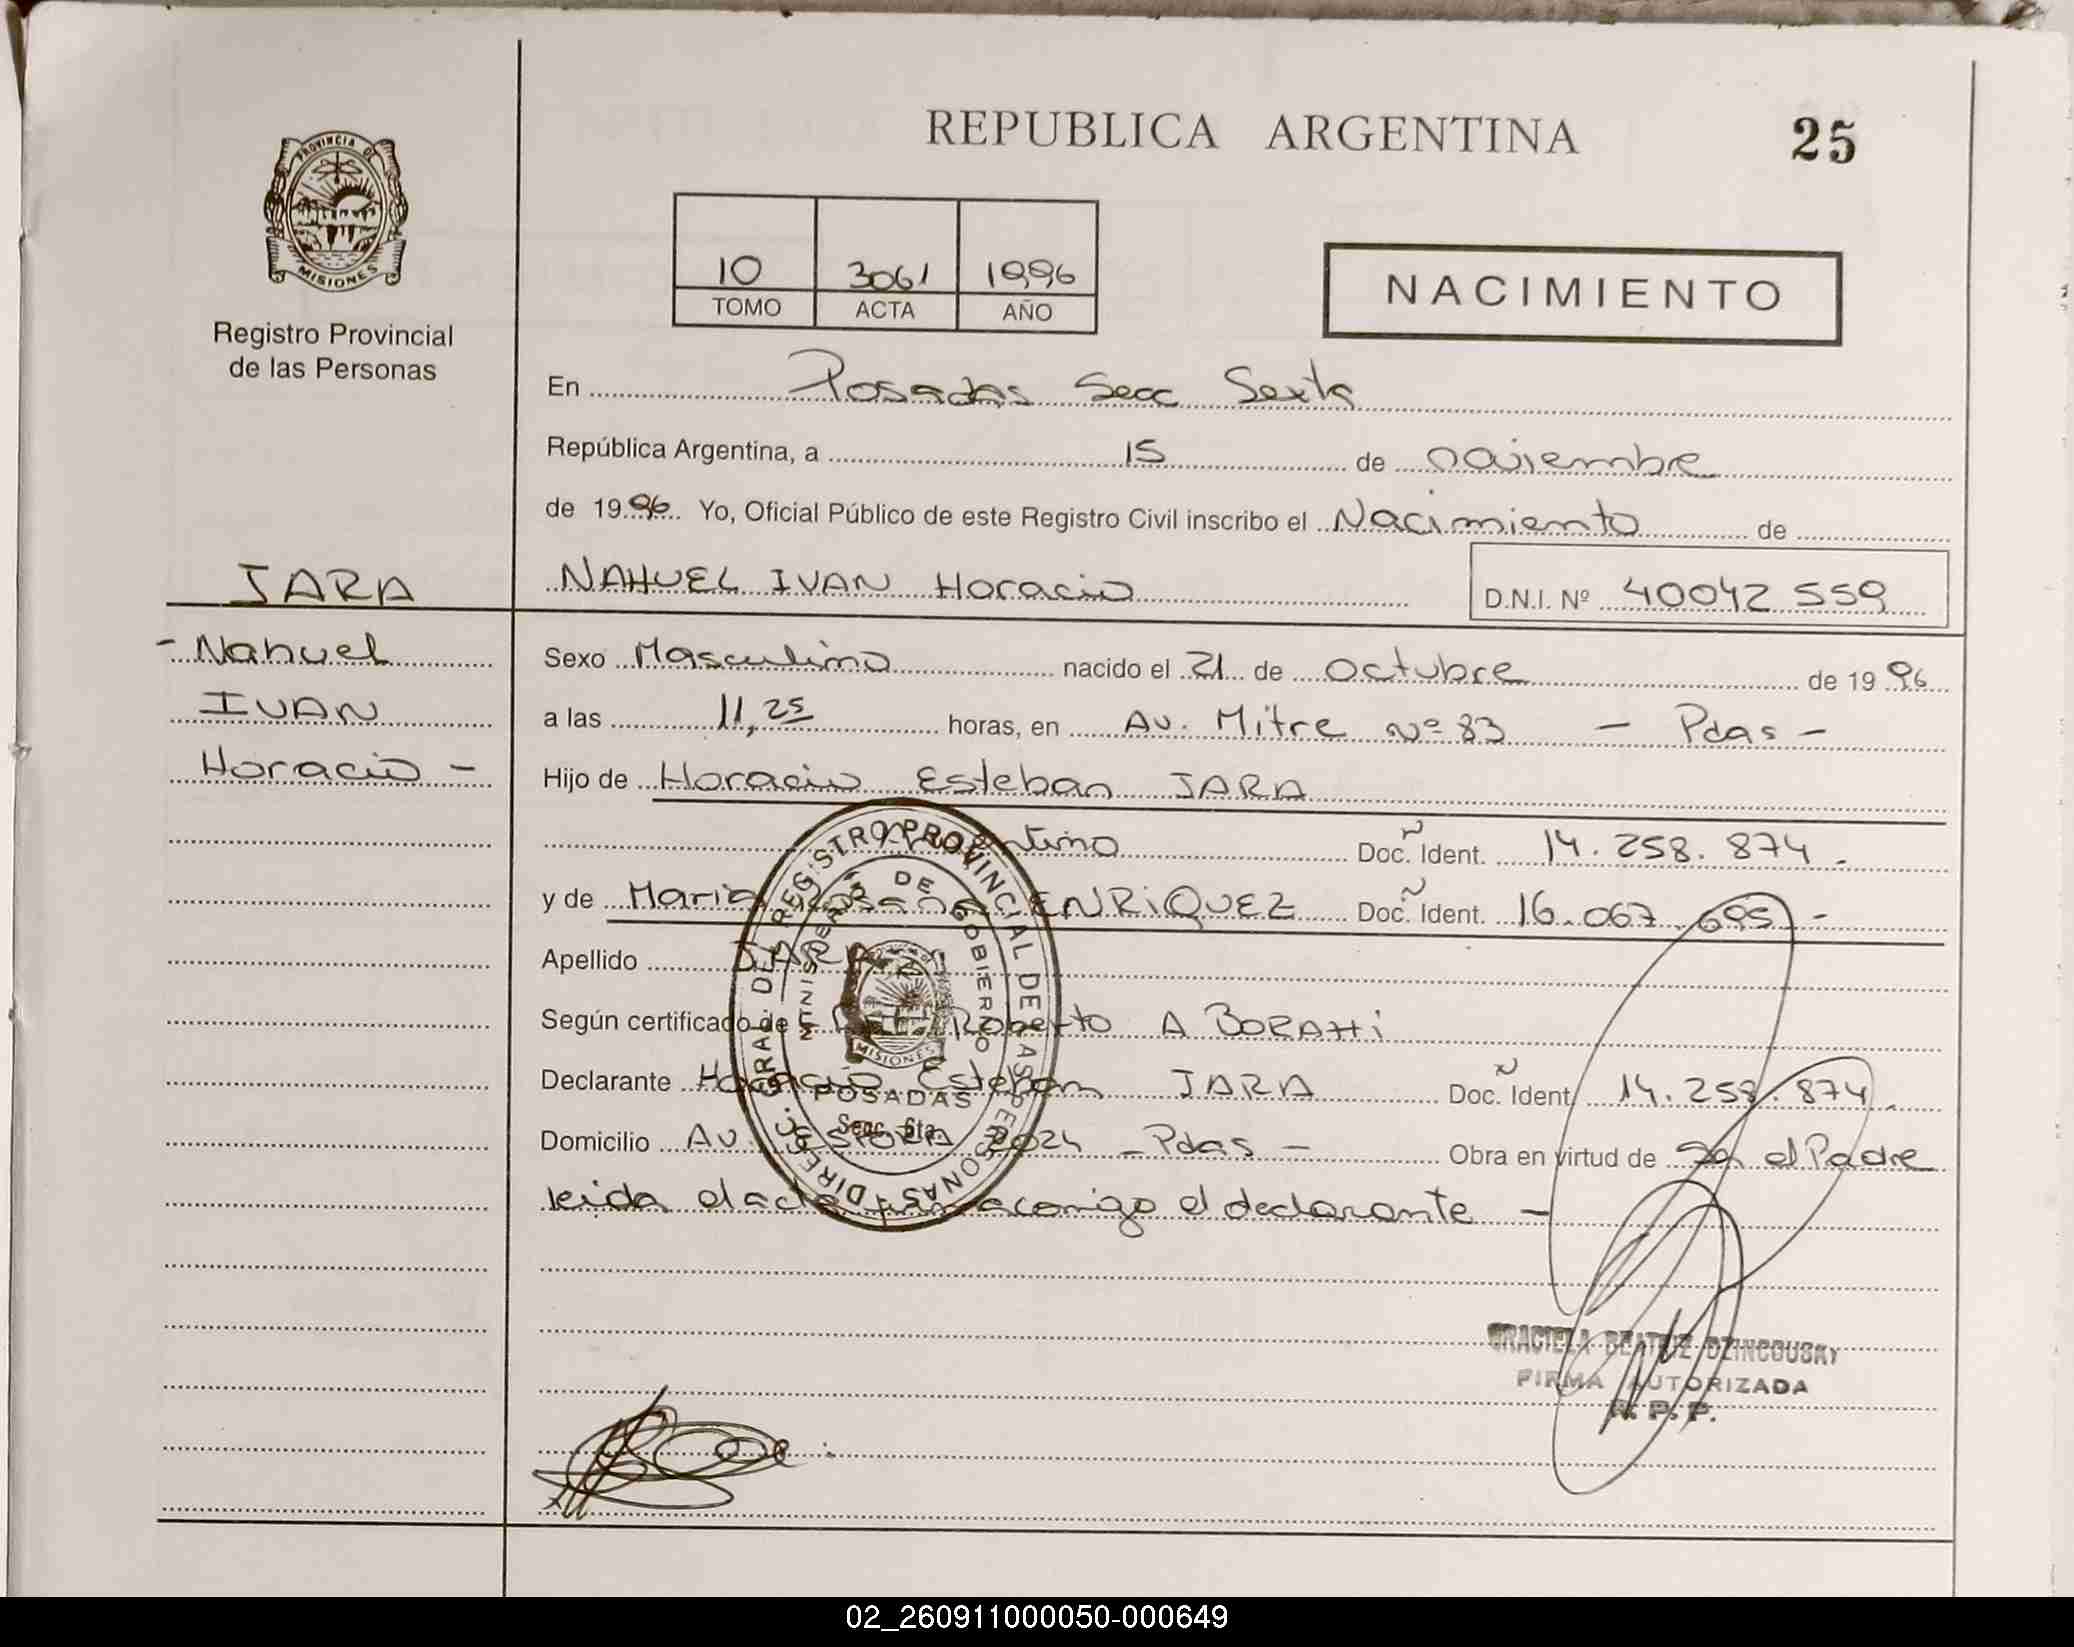 PROVINCIA DE
MISIONES
Registro Provincial
de las Personas
REPUBLICA ARGENTINA 25
10 3061 1996
TOMO ACTA AÑO
NACIMIENTO
En Posadas Secc Sexta
República Argentina, a 15 de noviembre
de 1996 Yo, Oficial Público de este Registro Civil inscribo el Nacimiento de
JARA NAHUEL IVAN Horacio D.N.I. Nº 40042559
- Nahuel Sexo Masculino nacido el 21 de octubre de 1996
IVAN a las 11,25 horas, en Av. Mitre Nº 83 - Pdas -
Horacio - Hijo de Horacio Esteban JARA
Argentino Doc. Ident. 14.258.874.
y de Maria Susana ENRIQUEZ Doc. Ident. 16.067.695 -
Apellido JARA
Según certificado de Roberto A
Declarante Horacio Esteban JARA Doc. Ident. 14.258.874.
Domicilio Av. 2024 - Pdas - Obra en virtud de ser el Padre
leida el acta firma conmigo el declarante -
DIREC. GRAL DEL REGISTRO PROVINCIAL DE LAS PERSONAS
MINISTERIO DE GOBIERNO
MISIONES
POSADAS
Secc. 6ta.
GRACIELA BEATRIZ DZINCOUSKY
FIRMA AUTORIZADA
R. P. P.
02_260911000050-000649